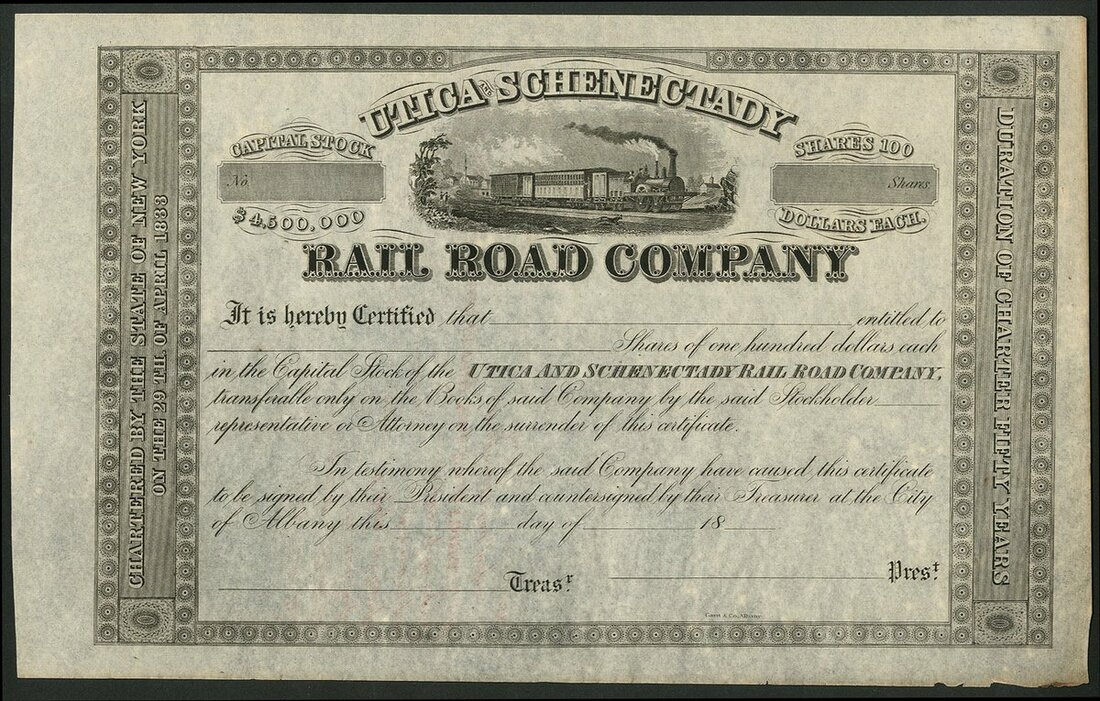 UTICA AND SCHENECTADY
CAPITAL STOCK
No.
$4,500,000
SHARES 100
Shares
DOLLARS EACH.
RAIL ROAD COMPANY
It is hereby Certified that entitled to
Shares of one hundred dollars each
in the Capital Stock of the UTICA AND SCHENECTADY RAIL ROAD COMPANY,
transferable only on the Books of said Company by the said Stockholder
representative or Attorney on the surrender of this certificate.
In testimony whereof the said Company have caused this certificate
to be signed by their President and countersigned by their Treasurer at the City
of Albany this day of 18
Treasr. Prest.
CHARTERED BY THE STATE OF NEW YORK
ON THE 29TH. OF APRIL 1833
DURATION OF CHARTER FIFTY YEARS